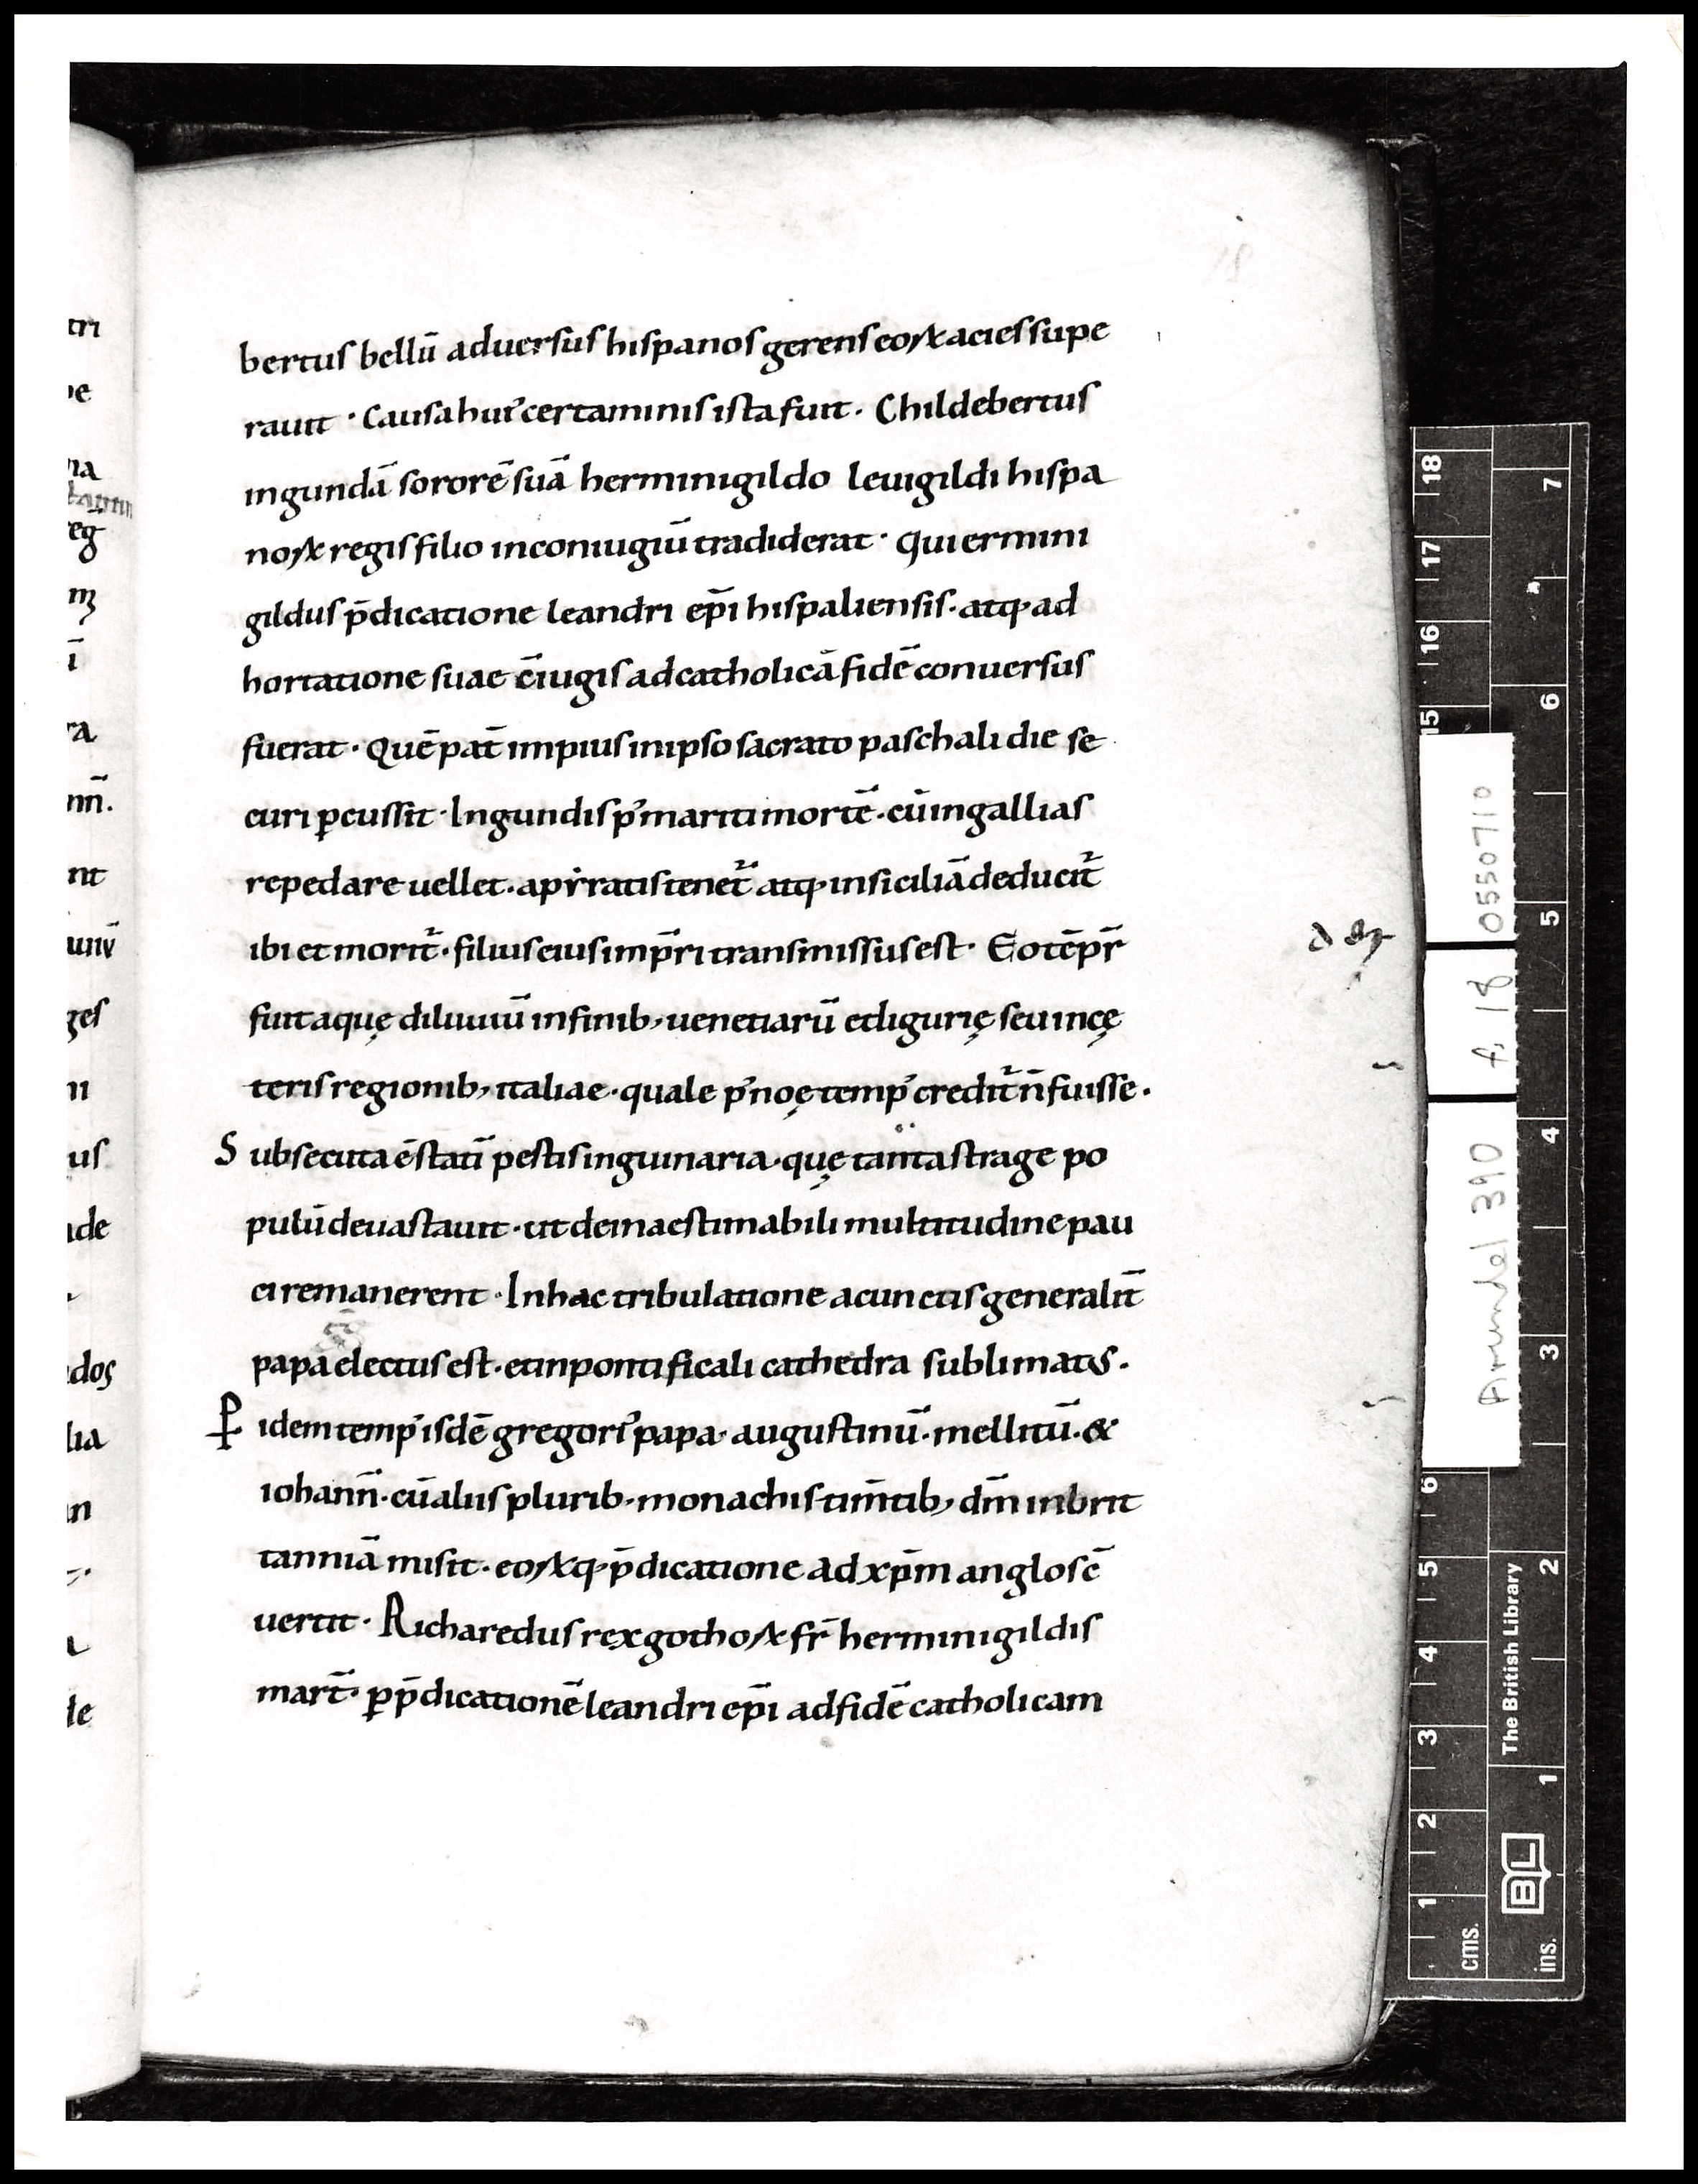 bertus bellū aduersus hispanos gerens eoꝝ acies supe
rauit · Causa huiꝰ certaminis ista fuit . Childebertus
ingundā sororē suā herminigildo leuigildi hispa
noꝝ regis filio in coniugiū tradiderat · qui ermini
gildus p̄dicatione leandri ep̄i hispaliensis . atq· ad
hortatione suae c̄iugis ad catholicā fidē conuersus
fuerat · Quē pat̄ impius in ipso sacrato paschali die se
curi ꝑcussit · Ingundis pꝰ mariti mortē . cū in gallias
repedare uellet . a pyratis tenet᷑ atq· in siciliā deducit᷑
ibi et morit᷑ . filius eius imp̄ri transmissus est · Eo tēpr̄
fuit aquę diluuiū in finib; uenetiarū et ligurię seu in cę
teris regionib; italiae · quale pꝰ noę tempꝰ credit᷑ n̄ fuisse .
Subsecuta ē statī pestis inguinaria · quę tanta strage po
pulū deuastauit · ut de inaestimabili multitudine pau
ci remanerent · In hac tribulatione a cunctis generalit̄
papa electus est . et in pontificali cathedra sublimatꝰ .
Ꝑ idem tempꝰ isdē gregoriꝰ papa · augustinū . mellitū . &
iohann̄ . cū aliis plurib· monachis tim̄tib; dm̄ in brit
tanniā misit . eoꝝq· p̄dicatione ad xp̄m anglos c̄
uertit · Richaredus rex gothoꝝ fr̄ herminigildis
mart̄ · ꝑ p̄dicationē leandri ep̄i ad fidē catholicam
tri
na
reg
ra
nn̄.
nt
ges
us
ide
dos
lia
in
le
18
17
16
15
6
5
4
3
2
1
cms.
7
6
5
4
3
2
1
ins.
0550710
f. 18
Arundel 390
The British Library
BL